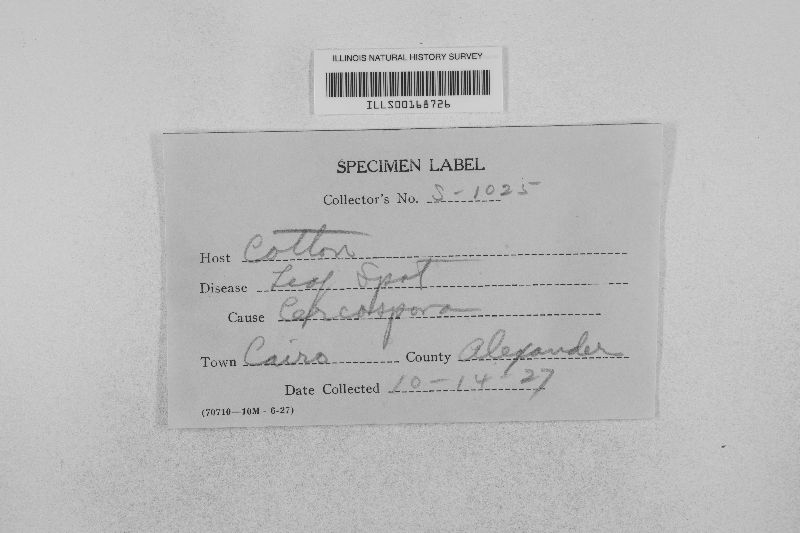 ILLINOIS NATURAL HISTORY SURVEY
ILLS00168726
SPECIMEN LABEL
Collector's No. S-1025
Host Cotton
Disease Leaf Spot
Cause Cercospora
Town Cairo County Alexander
Date Collected 10-14-27
(70710—10M-6-27)